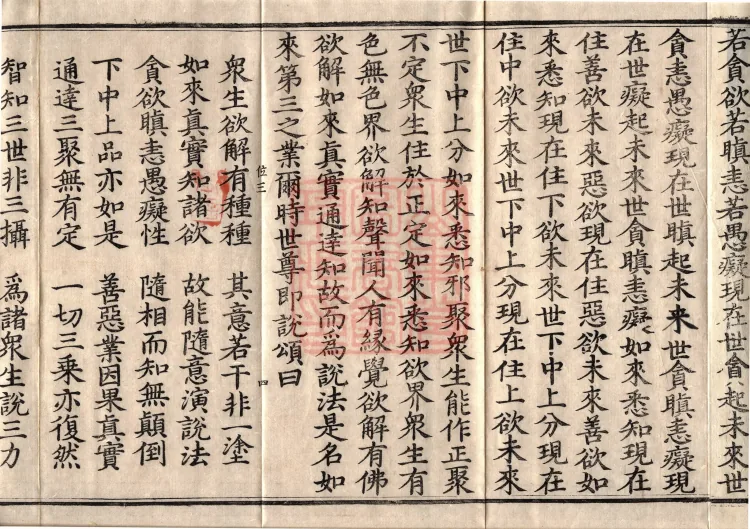 若貪欲若瞋恚若愚癡現在世貪起未來世
貪恚愚癡現在世瞋起未來世貪瞋恚癡現
在世癡起未來世貪瞋恚癡如來悉知現在
住善欲未來惡欲現在住惡欲未來善欲如
來悉知現在住下欲未來世下中上分現在
住中欲未來世下中上分現在住上欲未來
世下中上分如來悉知邪聚衆生能作正聚
不定衆生住於正定如來悉知欲界衆生有
色無色界欲解知聲聞人有緣覺欲解有佛
欲解如來真實通達知故而爲說法是名如
來第三之業爾時世尊即說頌曰
位三 四
衆生欲解有種種 其意若干非一塗
如來真實知諸欲 故能隨意演說法
貪欲瞋恚愚癡性 隨相而知無顛倒
下中上品亦如是 善惡業因果真實
通達三聚無有定 一切三乘亦復然
智知三世非三攝 爲諸衆生說三力